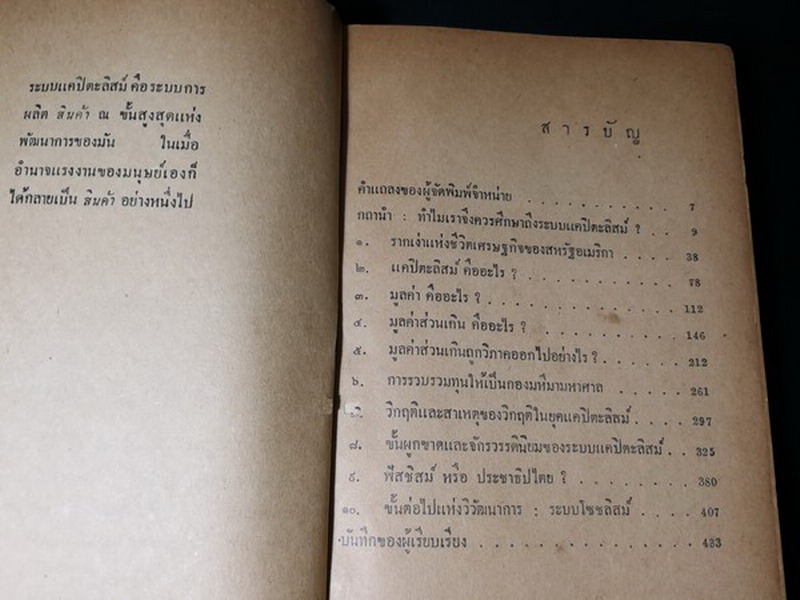 ระบบแคปิตะลิสม์ คือระบบการ
ผลิต สินค้า ณ ขั้นสูงสุดแห่ง
พัฒนาการของมัน ในเมื่อ
อำนาจแรงงานของมนุษย์เองก็
ได้กลายเป็น สินค้า อย่างหนึ่งไป
สารบัญ
คำแถลงของผู้จัดพิมพ์จำหน่าย . . . . . . . . . . 7
กถานำ : ทำไมเราจึงควรศึกษาถึงระบบแคปิตะลิสม์ ? . . 9
๑. รากเง่าแห่งชีวิตเศรษฐกิจของสหรัฐอเมริกา . . . . 38
๒. แคปิตะลิสม์ คืออะไร ? . . . . . . . . . . 78
๓. มูลค่า คืออะไร ? . . . . . . . . . . . . 112
๔. มูลค่าส่วนเกิน คืออะไร ? . . . . . . . . . 146
๕. มูลค่าส่วนเกินถูกวิภาคออกไปอย่างไร ? . . . . . . 212
๖. การรวบรวมทุนให้เป็นกองมหึมามหาศาล . . . . . 261
๗. วิกฤติและสาเหตุของวิกฤติในยุคแคปิตะลิสม์ . . . . 297
๘. ขั้นผูกขาดและจักรวรรดินิยมของระบบแคปิตะลิสม์ . . 325
๙. ฟัสซิสม์ หรือ ประชาธิปไตย ? . . . . . . . . 380
๑๐. ขั้นต่อไปแห่งวิวัฒนาการ : ระบบโซชลิสม์ . . . . 407
บันทึกของผู้เรียบเรียง . . . . . . . . . . . . . 433